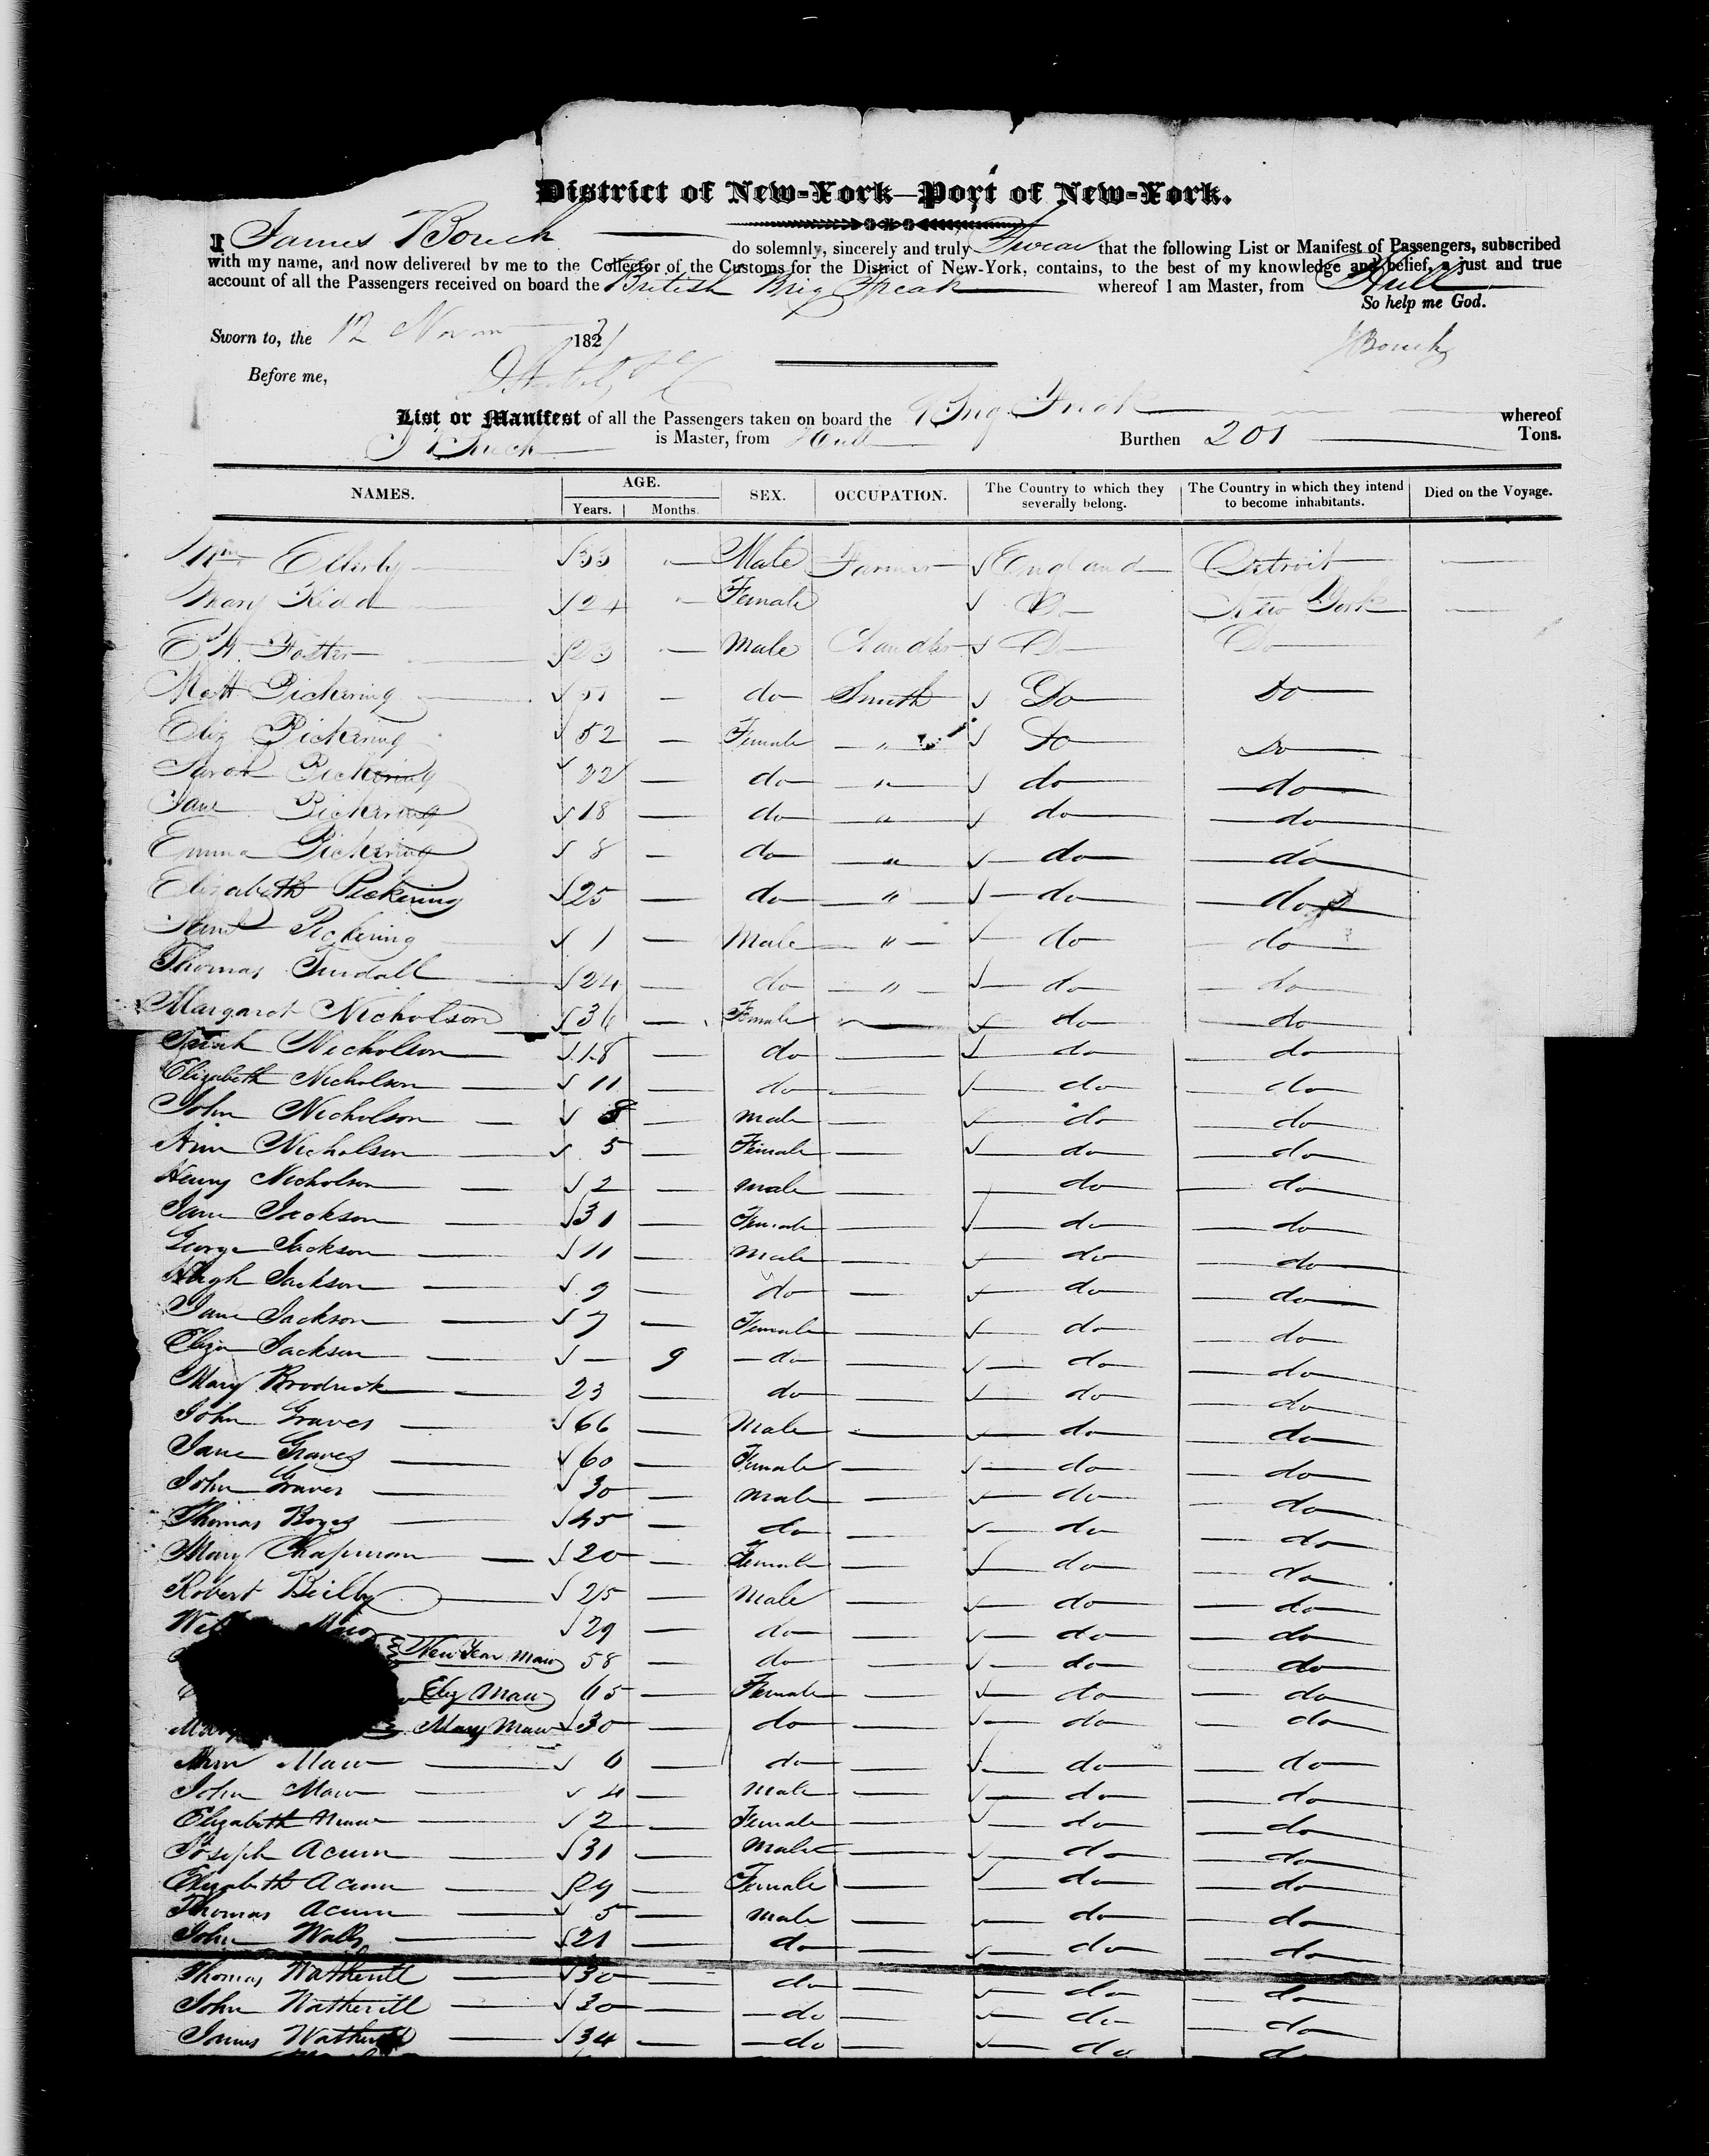 District of New-York—Port of New-York.
I James Bouch do solemnly, sincerely and truly Swear that the following List or Manifest of Passengers, subscribed
with my name, and now delivered by me to the Collector of the Customs for the District of New-York, contains, to the best of my knowledge and belief, a just and true
account of all the Passengers received on board the British Brig Freak whereof I am Master, from Hull
So help me God.
Sworn to, the 12 Novm 1821
JBouch
Before me,
List or Manifest of all the Passengers taken on board the Brig Freak whereof
J Bouch is Master, from Hull Burthen 201 Tons.
NAMES. AGE. Years. Months. SEX. OCCUPATION. The Country to which they severally belong. The Country in which they intend to become inhabitants. Died on the Voyage.
Wm Ellerby 33 " Male Farmer England Detroit
Mary Kidd 24 " Female Do New York
Foster 23 Male Chandler Do Do
Matt Pickering 51 — do Smith Do Do
Eliz Pickering 52 — Female " Do Do
Sarah Pickering 22 — do " do do
Jane Pickering 18 — do " do do
Emma Pickering 8 — do " do do
Elizabeth Pickering 25 — do " do do
Pickering 1 — Male " do do
Thomas Tindall 24 — do " do do
Margaret Nicholson 36 — Female — do do
Sarah Nicholson 18 — do — do do
Elizabeth Nicholson 11 — do — do do
John Nicholson 8 — male — do do
Ann Nicholson 5 — Female — do do
Henry Nicholson 2 — male — do do
Jane Jackson 31 — Female — do do
George Jackson 11 — male — do do
Hugh Jackson 9 — do — do do
Jane Jackson 7 — Female — do do
Eliza Jackson — 9 do — do do
Mary Brodrick 23 — do — do do
John Graves 66 — Male — do do
Jane Graves 60 — Female — do do
John Graves 30 — male — do do
Thomas Boyes 45 — do — do do
Mary Chapman 20 — Female — do do
Robert Bielby 25 — Male — do do
Maw 29 — do — do do
New Year Maw 58 — do — do do
Eliz Maw 65 — Female — do do
Mary Maw 30 — do — do do
Ann Maw 6 — do — do do
John Maw 4 — male — do do
Elizabeth Maw 2 — Female — do do
Joseph Acum 31 — male — do do
Elizabeth Acum 29 — Female — do do
Thomas Acum 5 — male — do do
John Walls 21 — do — do do
Thomas Watherill 30 — do — do do
John Watherill 30 — do — do do
James Watherill 34 — do — do do